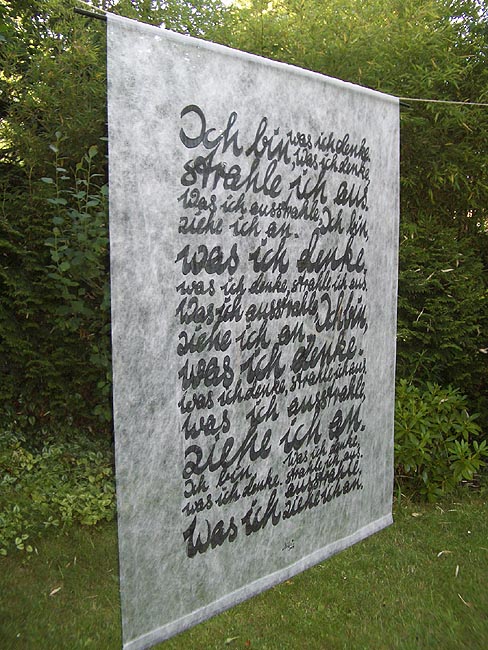 Ich bin, was ich denke.
Was ich denke,
strahle ich aus.
Was ich ausstrahle,
ziehe ich an. Ich bin,
was ich denke.
was ich denke, strahle ich aus.
Was ich ausstrahle,
ziehe ich an. Ich bin,
was ich denke.
was ich denke, strahle ich aus.
was ich ausstrahle,
ziehe ich an.
Ich bin, was ich denke.
was ich denke, strahle ich aus.
Was ich ausstrahle,
ziehe ich an.